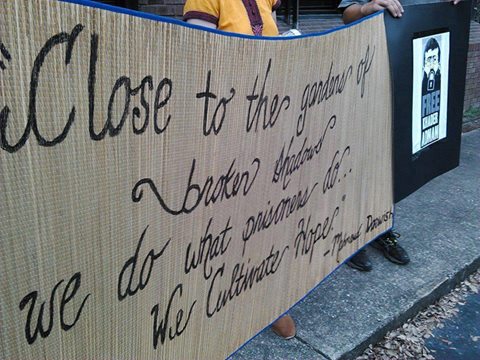 "Close to the gardens of
broken shadows
we do what prisoners do...
We Cultivate Hope."
- Mahmoud Darwish
FREE
KHADER
ADNAN